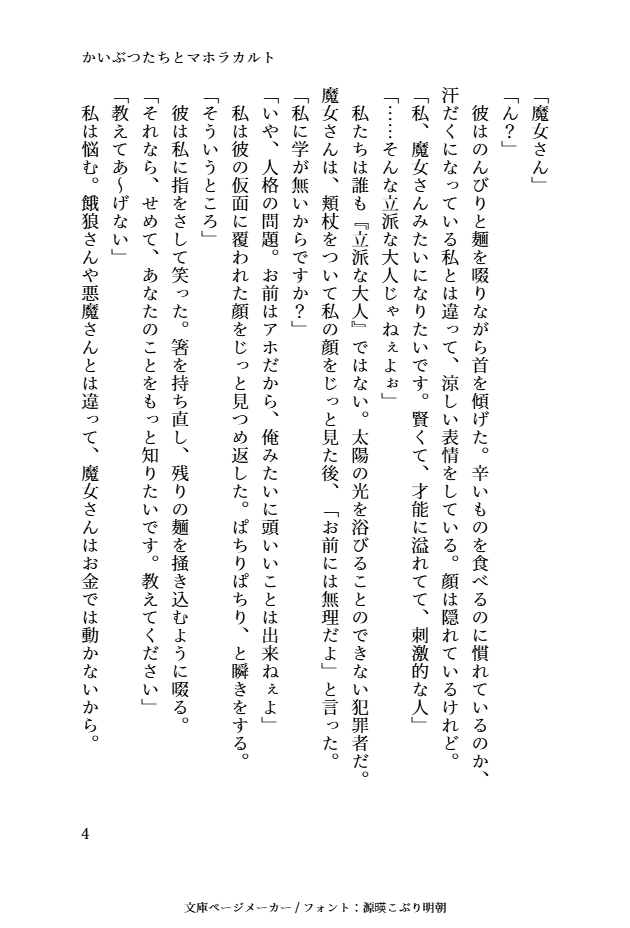 かいぶつたちとマホラカルト
「魔女さん」
「ん？」
　彼はのんびりと麺を啜りながら首を傾げた。辛いものを食べるのに慣れているのか、
汗だくになっている私とは違って、涼しい表情をしている。顔は隠れているけれど。
「私、魔女さんみたいになりたいです。賢くて、才能に溢れてて、刺激的な人」
「……そんな立派な大人じゃねぇよぉ」
　私たちは誰も『立派な大人』ではない。太陽の光を浴びることのできない犯罪者だ。
魔女さんは、頬杖をついて私の顔をじっと見た後、「お前には無理だよ」と言った。
「私に学が無いからですか？」
「いや、人格の問題。お前はアホだから、俺みたいに頭いいことは出来ねぇよ」
　私は彼の仮面に覆われた顔をじっと見つめ返した。ぱちりぱちり、と瞬きをする。
「そういうところ」
　彼は私に指をさして笑った。箸を持ち直し、残りの麺を掻き込むように啜る。
「それなら、せめて、あなたのことをもっと知りたいです。教えてください」
「教えてあ〜げない」
　私は悩む。餓狼さんや悪魔さんとは違って、魔女さんはお金では動かないから。
4
文庫ページメーカー / フォント：源暎こぶり明朝